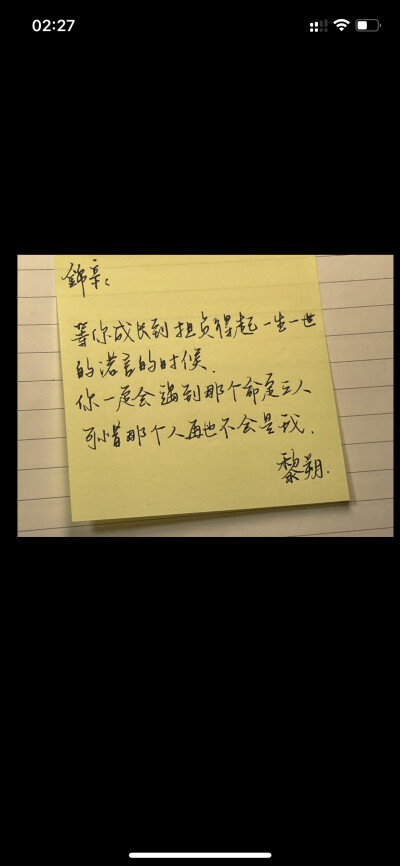 02:27
錦辛:
等你成长到担负得起一生一世
的诺言的时候.
你一定会遇到那个命定之人
可惜那个人再也不会是我.
黎朔.